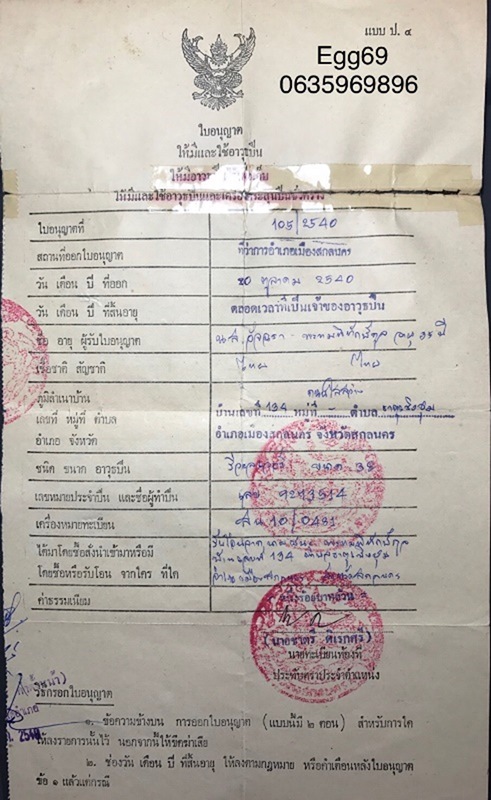 แบบ ป. ๔
Egg69
0635969896
ใบอนุญาต
ให้มีและใช้อาวุธปืน
ให้มีและใช้อาวุธปืนและเครื่องกระสุนปืนชั่วคราว
ใบอนุญาตที่ 105/2540
สถานที่ออกใบอนุญาต ที่ว่าการอำเภอเมืองสกลนคร
วัน เดือน ปี ที่ออก 20 ตุลาคม 2540
วัน เดือน ปี ที่สิ้นอายุ ตลอดเวลาที่เป็นเจ้าของอาวุธปืน
ชื่อ อายุ ผู้รับใบอนุญาต น.ส. อายุ 35 ปี
เชื้อชาติ สัญชาติ ไทย ไทย
ภูมิลำเนาบ้าน
เลขที่ หมู่ที่ ตำบล บ้านเลขที่ 134 หมู่ที่ - ตำบล ธาตุเชิงชุม
อำเภอ จังหวัด อำเภอเมืองสกลนคร จังหวัดสกลนคร
ชนิด ขนาด อาวุธปืน ขนาด 38
เลขหมายประจำปืน และชื่อผู้ทำปืน เลข 9213514
เครื่องหมายทะเบียน สน 10/0431
ได้มาโดยซื้อสั่งนำเข้ามาหรือมี
โดยซื้อหรือรับโอน จากใคร ที่ใด
ค่าธรรมเนียม
นายทะเบียนท้องที่
ประทับตราประจำตำแหน่ง
วิธีกรอกใบอนุญาต
๑. ข้อความข้างบน การออกใบอนุญาต (แบบนี้มี ๒ ตอน) สำหรับการใด
ให้ลงรายการนั้นไว้ นอกจากนี้ให้ขีดฆ่าเสีย
๒. ช่องวัน เดือน ปี ที่สิ้นอายุ ให้ลงตามกฎหมาย หรือคำเตือนหลังใบอนุญาต
ข้อ ๑ แล้วแต่กรณี